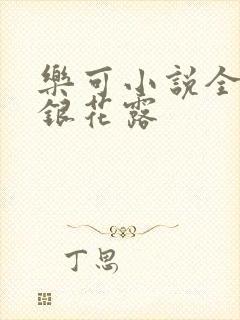 樂可小說全
銀花露
丁思